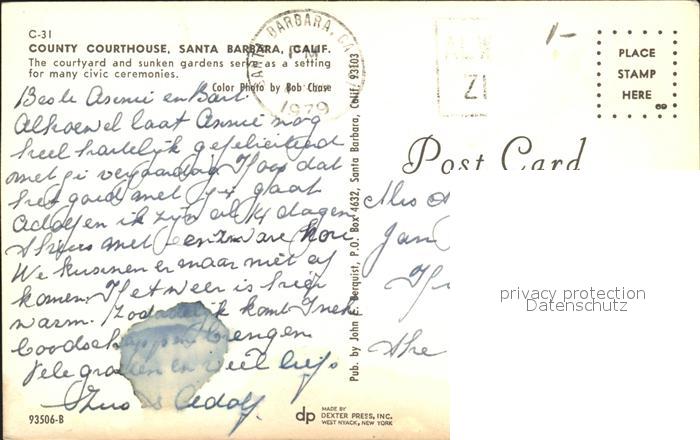 C-31
COUNTY COURTHOUSE, SANTA BARBARA, CALIF.
The courtyard and sunken gardens serve as a setting
for many civic ceremonies.
Color Photo by Bob Chase
SANTA BARBARA, CA
PM
1979
PLACE
STAMP
HERE
69
Post Card
Beste Annie en Bart.
Alhoewel laat Annie nog
heel hartelijk gefeliciteerd
met je verjaardag. Hoop dat
het goed met je gaat
Adolf en ik zijn al 14 dagen
thuis met een zware kou
We kunnen er maar niet af
komen. Het weer is hier
warm. Zodadelijk komt Ineke
boodschappen brengen
Vele groeten en veel liefs
Adolf.
Mrs A
Jan
She
Pub. by John E. Berquist, P.O. Box 4632, Santa Barbara, Calif. 93103
privacy protection
Datenschutz
93506-B
dp MADE BY
DEXTER PRESS, INC.
WEST NYACK, NEW YORK